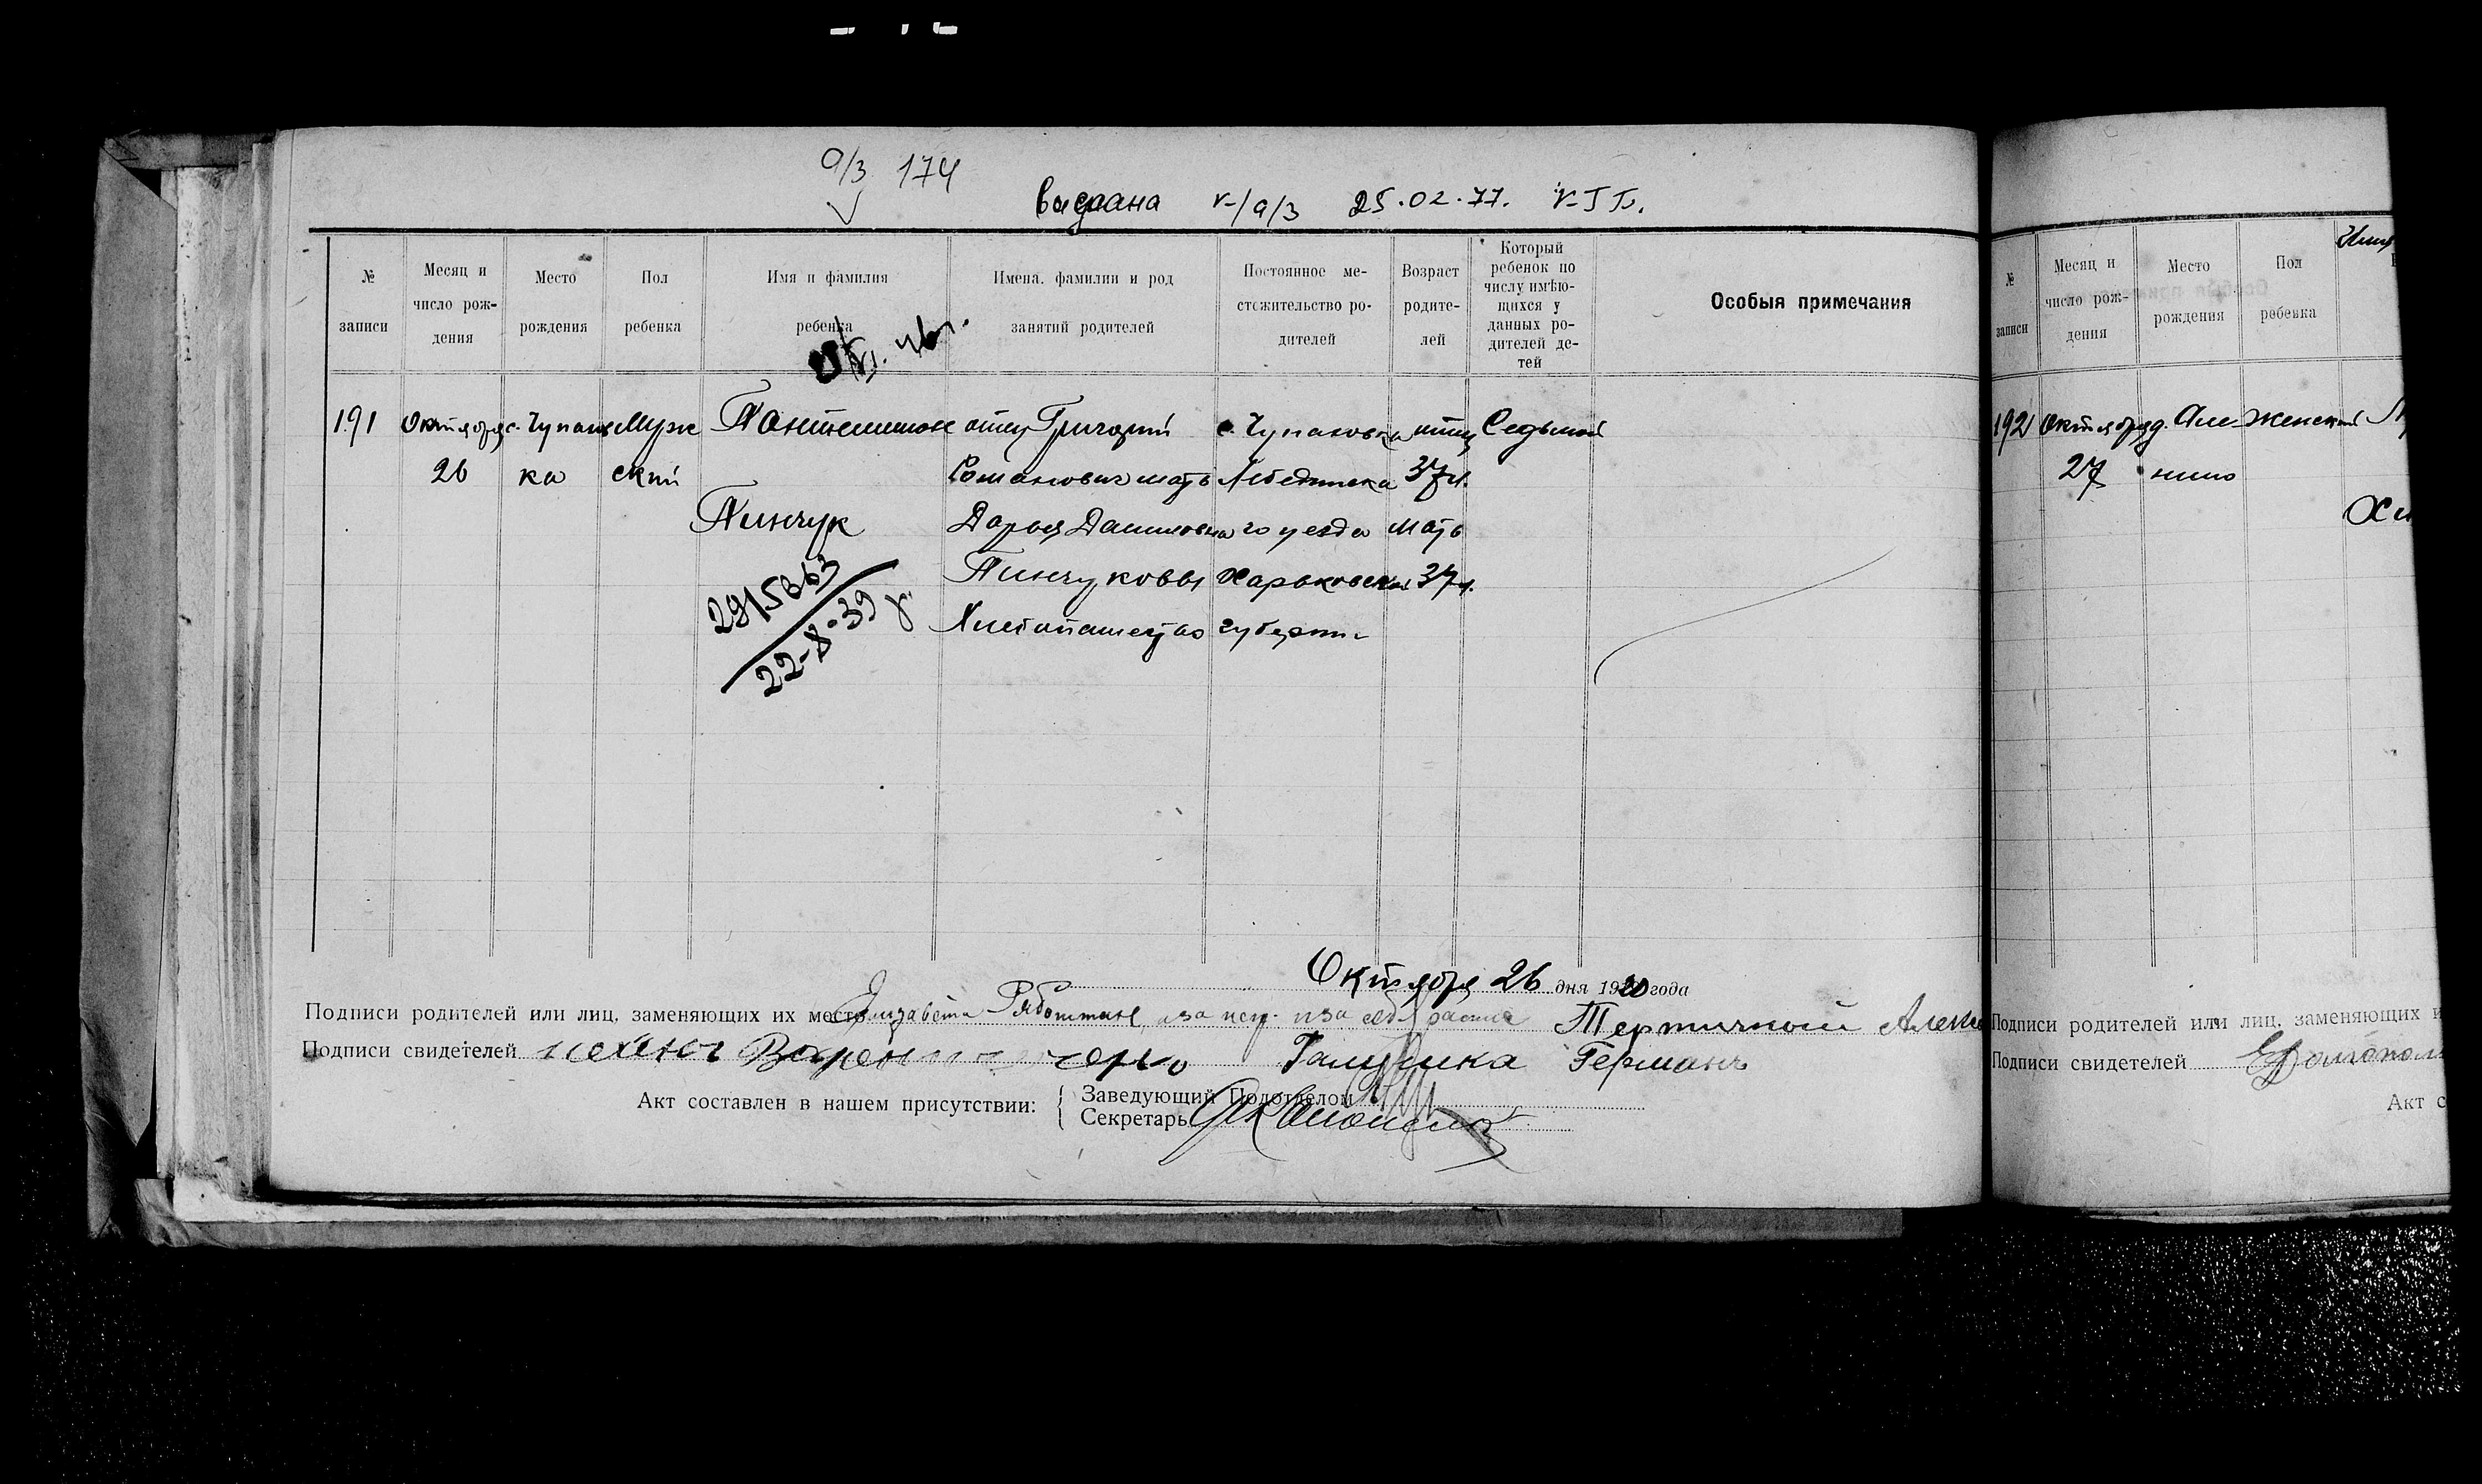 а/з 174
выдана v-/а/з 25.02.77.
№ записи
Месяц и число рождения
Место рождения
Пол ребенка
Имя и фамилия ребенка
Имена, фамилии и род занятий родителей
Постоянное местожительство родителей
Возраст родителей
Который ребенок по числу имѣющихся у данных родителей детей
Особыя примечания
191 Октября с. Чупахо Муж Пантелеимон отец Григорий с. Чупаховка отец Седьмой
26 ка ский Романович мать Лебединска 37 л.
Пинчук Дарья Даниловна го уезда мать
Пинчуковы Харьковской 37 л.
Хлебопашество губернии
2915363
22-8-39 г
Октября 26 дня 1920 года
Подписи родителей или лиц, заменяющих их место Елизавета
Подписи свидетелей Галушка Герман
Акт составлен в нашем присутствии:
Заведующий Подотделом
Секретарь
№ записи
Месяц и число рождения
Место рождения
Пол ребенка
192 Октября д. Але- Женский
27 нино
Подписи родителей или лиц, заменяющих и
Подписи свидетелей
Акт с